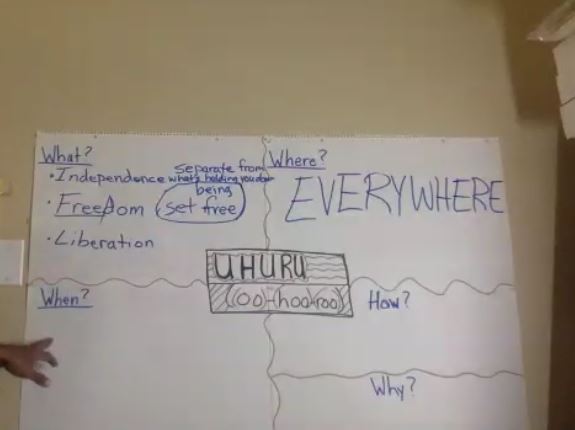 What?
• Independence separate from
what's holding you down
• Freedom being
set free
• Liberation
Where?
EVERYWHERE
UHURU
(oo)-(hoo)(roo)
When?
How?
Why?